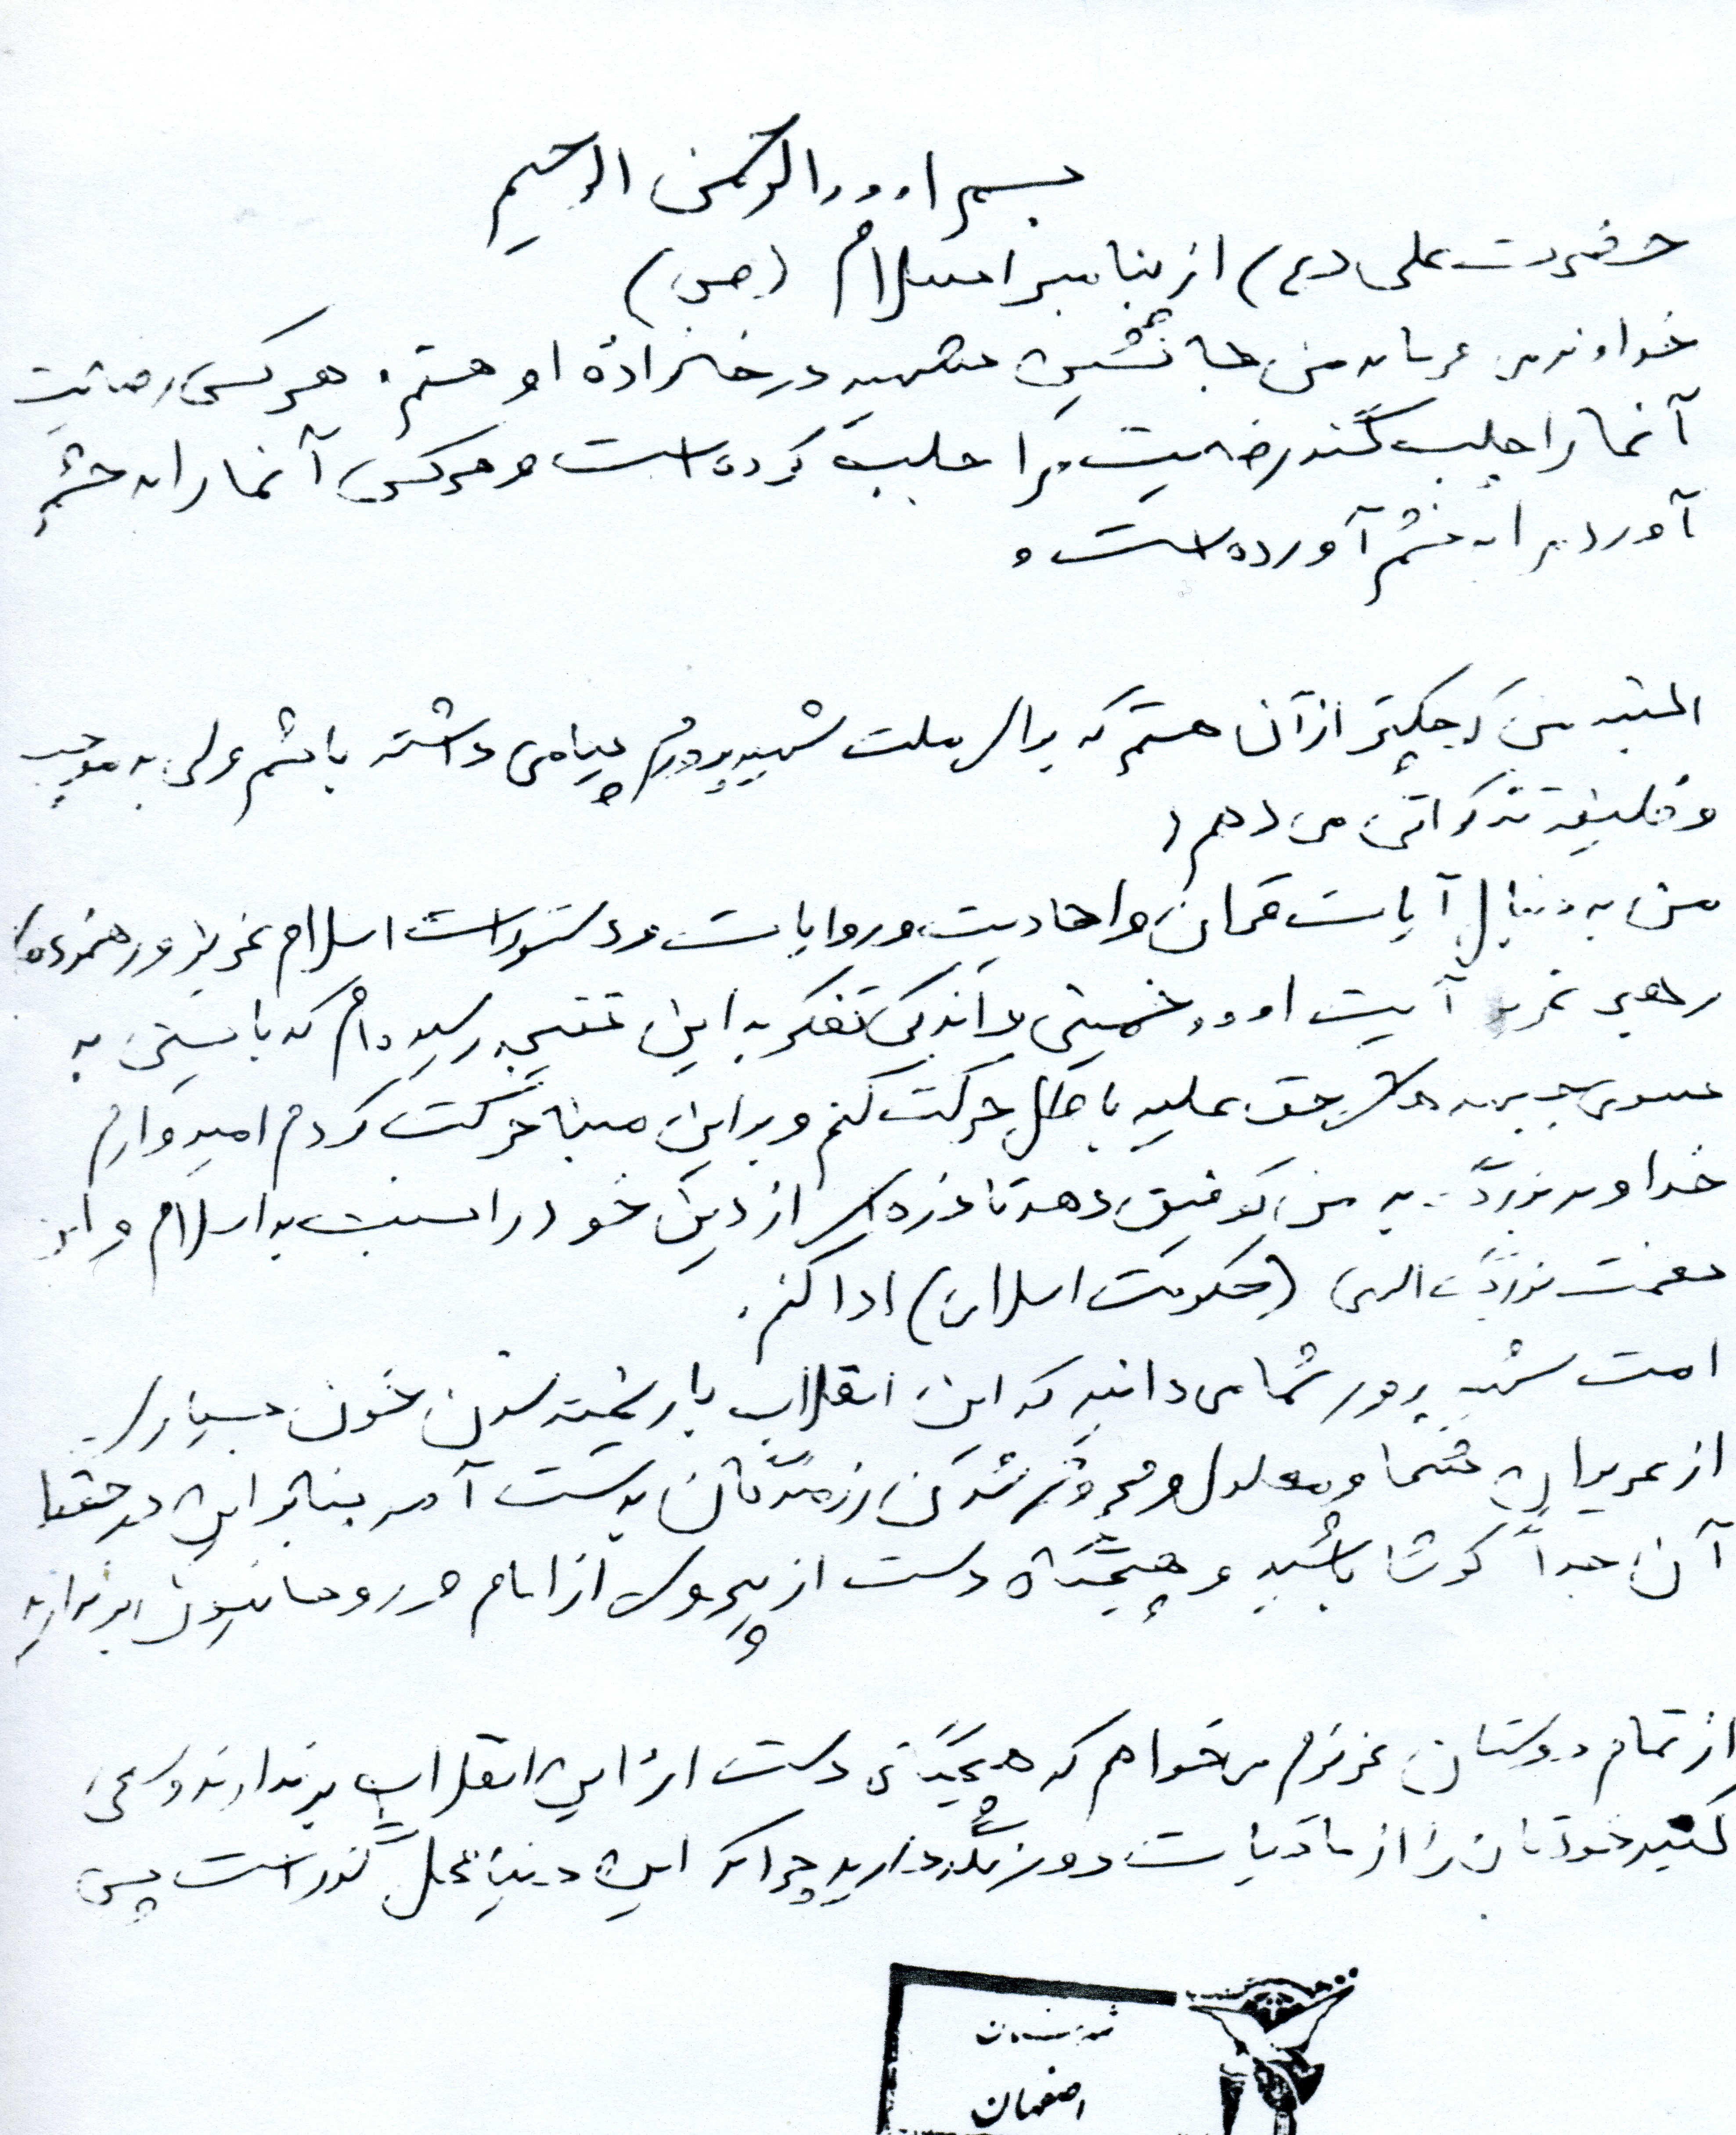 بسم ا... الرحمن الرحیم
حضرت علی (ع) از پیامبر اسلام (ص)
خداوند می فرماید من جانشین شهید در خانواده او هستم. هر کس رضایت
آنها را جلب کند رضایت مرا جلب کرده است و هر کس آنها را به خشم
آورد مرا به خشم آورده است و
البته من کوچکتر از آن هستم که برای ملت شهید پرورم پیامی داشته باشم ولی به موجب
وظیفه تذکراتی می دهم:
من به دنبال آیات قرآن و احادیث و روایات و دستورات اسلام عزیز و رهنمودهای
رهبر عزیز آیت ا... خمینی و اندکی تفکر به این نتیجه رسیده ام که بایستی به
سوی جبهه های حق علیه باطل حرکت کنم و بر این مبنا حرکت کردم امیدوارم
خداوند بزرگ به من توفیق دهد تا ذره ای از دین خود را نسبت به اسلام و این
نعمت بزرگ الهی (حکومت اسلامی) ادا کنم.
امت شهید پرور شما می دانید که این انقلاب با ریخته شدن خون بسیاری
از عزیزان شما و معلول و مجروح شدن رزمندگان بدست آمد بنابراین در حفظ
آن جداً کوشا باشید و هیچگاه دست از پیروی از امام و روحانیون برندارید
از تمام دوستان عزیزم می خواهم که هیچگاه دست از این انقلاب برندارند و سعی
کنید خودتان را از مادیات دور نگه دارید چرا که این دنیا محل گذر است پس
اصفهان